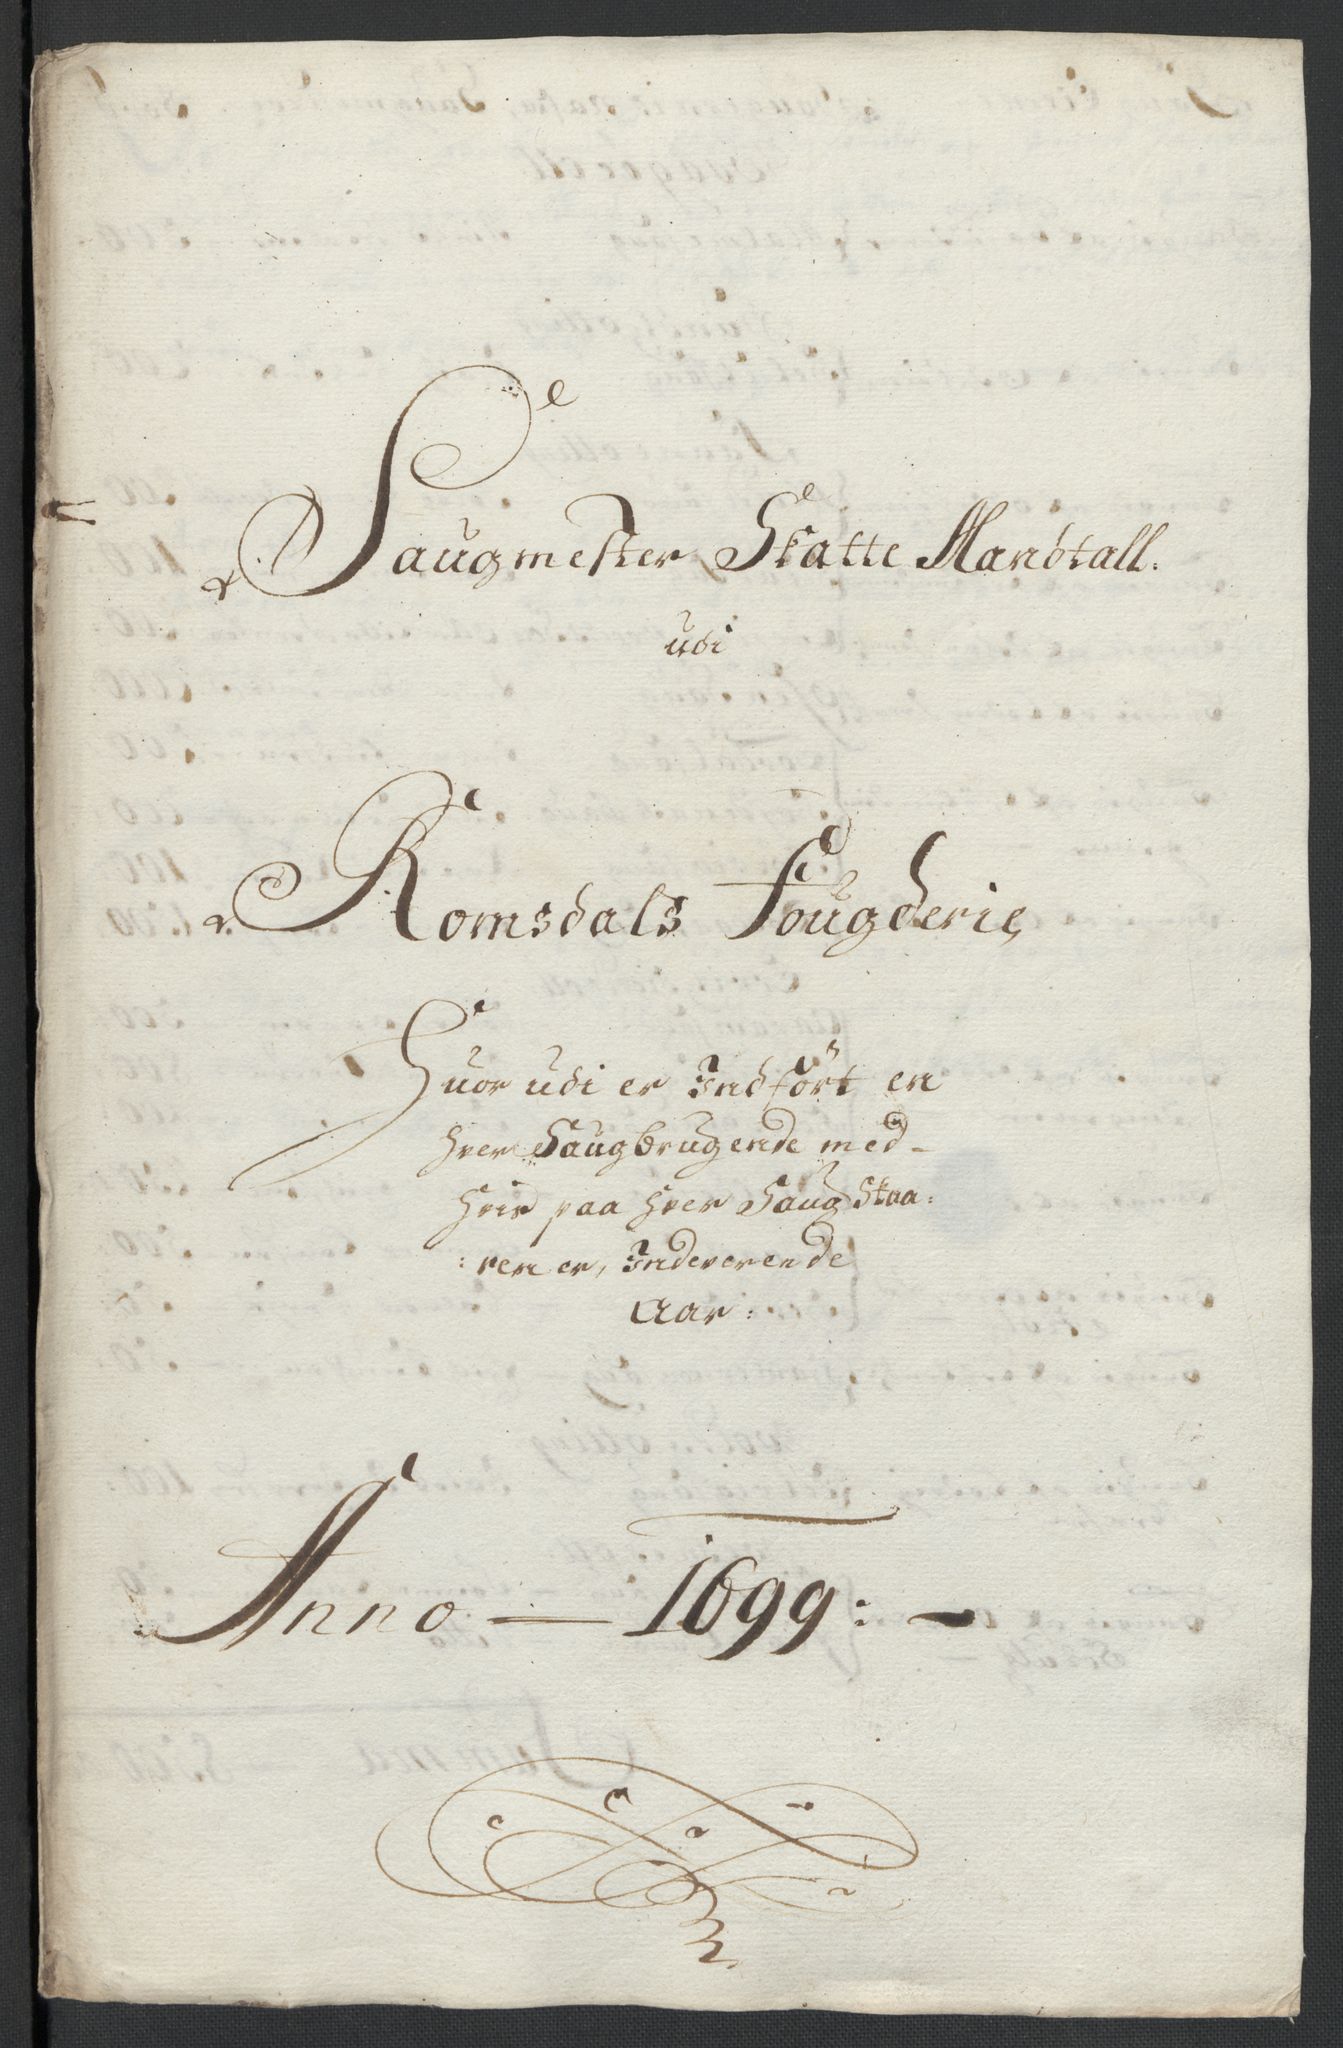 Saugmester Skatte Mandtall.
udi
Romsdals Fougderie,
Huor udi er Indfört en
hver Saugbrugende med-
hvis paa hver Saug Skaa:
:ren er, Indeverende
Aar:
Anno — 1699: —